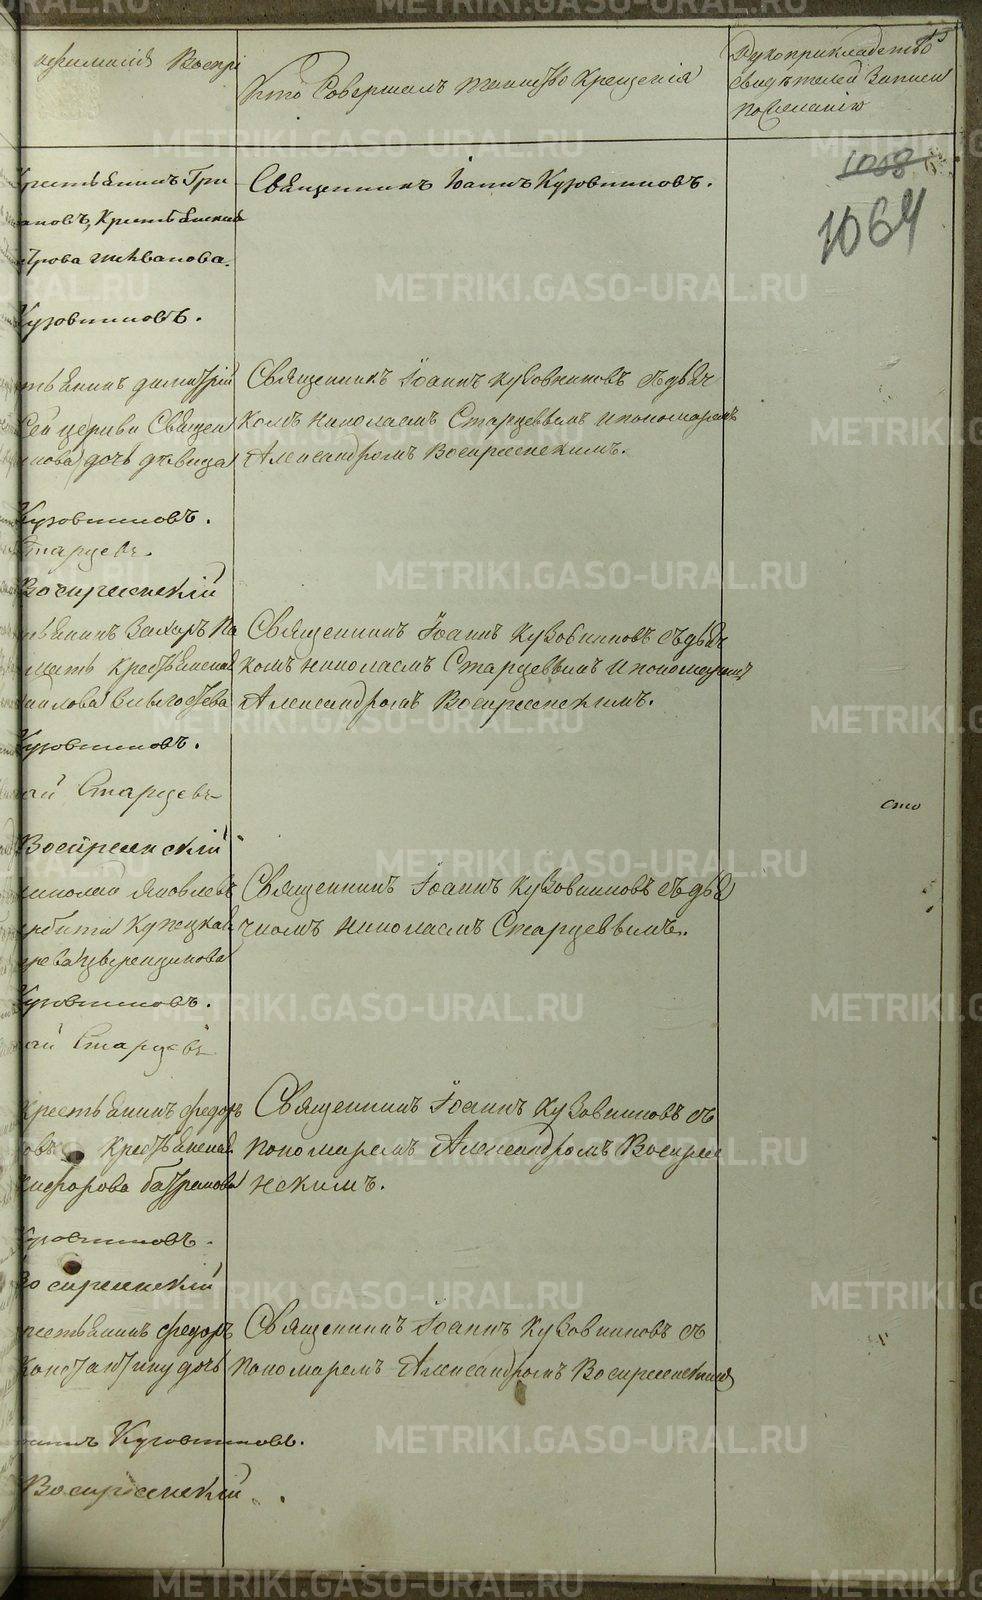 и фамилия Воспрі
Кто Совершалъ таинство Крещенія
Рукоприкладство
Свидѣтелей Записи
по Желанію
1068
1064
Крестьянинъ Гри
ановъ, Крестьянская
Священникъ Іоаннъ Кузовниковъ.
Кузовниковъ.
тьянинъ Димитрій
Сей церкви Священ
нова дочь дѣвица
Священникъ Іоаннъ Кузовниковъ съ дьяч
комъ Николаемъ Старцевымъ и пономаремъ
Александромъ Воскресенскимъ.
Кузовниковъ.
Старцевъ.
Воскресенскій
тьянинъ Захаръ Па
мать Крестьянская
Священникъ Іоаннъ Кузовниковъ съ дьяч
комъ Николаемъ Старцевымъ и пономаремъ
Александромъ Воскресенскимъ.
Кузовниковъ.
лай Старцевъ
Воскресенскій
сто
николай Яковлевъ
Ирбитская Купецкая
Священникъ Іоаннъ Кузовниковъ съ дья
чкомъ Николаемъ Старцевымъ.
Кузовниковъ.
лай Старцевъ
Крестьянинъ Федоръ
овъ Крестьянская
Никифорова батракова
Священникъ Іоаннъ Кузовниковъ съ
пономаремъ Александромъ Воскресе
нскимъ.
Кузовниковъ.
Воскресенскій
рестьянинъ Федоръ
Константину дочь
Священникъ Іоаннъ Кузовниковъ съ
пономаремъ Александромъ Воскресенскимъ
Іоаннъ Кузовниковъ.
Воскресенскій.
METRIKI.GASO-URAL.RU